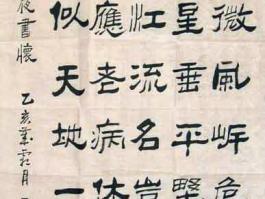 微風岸危
星垂平野
江流名豈
應老病休
似天地一
夜書懷 乙亥 月